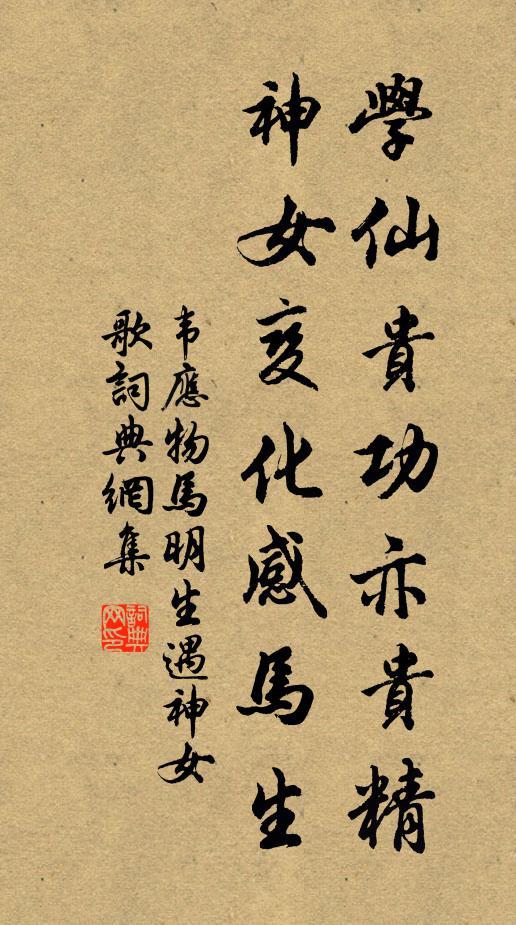 學仙貴功亦貴精
神女变化感馬生
韦應物馬明生遇神女
歌詞典網集
詞典
网印